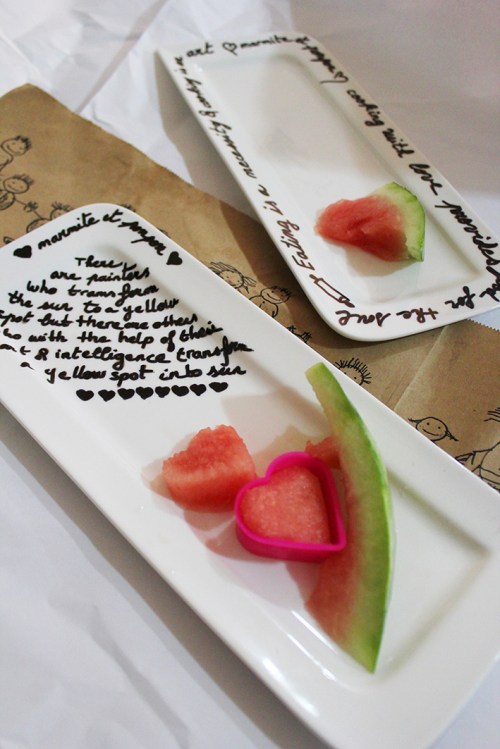 Eating is a necessity & cooking is an art ♡ marmite et ponpon ♡
cooking with love provides food
for the soul
♥ marmite et ponpon ♥
There
are painters
who transform
the sun to a yellow
spot but there are others
who with the help of their
art & intelligence transform
a yellow spot into sun